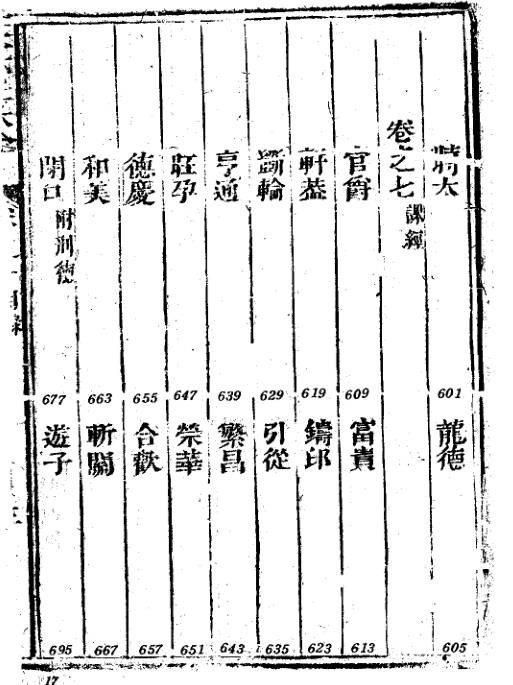 時太 601 龍德 605
卷之七 課經
官爵 609 富貴 613
軒蓋 619 鑄印 623
斲輪 629 引從 635
亨通 639 繁昌 643
旺孕 647 榮華 651
德慶 655 合歡 657
和美 663 斬關 667
閉口 附德 677 遊子 695
17